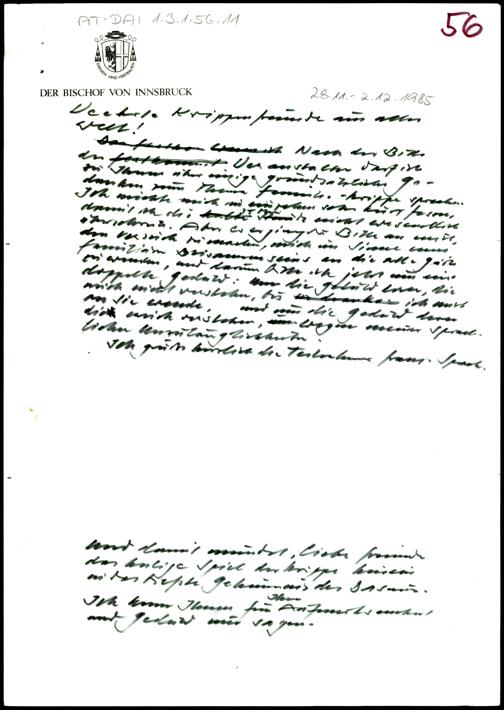 AT-DAI 1.3.1.56.11
56
DIENEN UND VERTRAUEN
DER BISCHOF VON INNSBRUCK
28.11.-2.12.1985
Verehrte Krippenfreunde aus aller
Welt!
Nach der Bitte
der Veranstalter darf ich
zu Ihnen über einige grundsätzliche Ge-
danken zum Thema Familie - Krippe sprechen.
Ich möchte mich im einzelnen sehr kurz fassen,
damit ich die nicht wesentlich
überschreite. Aber es erging die Bitte an mich,
den Versuch zu machen, mich im Sinne eines
familiären Beisammenseins an die alle Gäste
zu wenden, und darum bitte ich jetzt um eine
doppelte Geduld: um die Geduld derer, die
mich nicht verstehen, bis ich mich
an sie wende, und um die Geduld derer
die mich verstehen, wegen meiner sprach-
lichen Unzulänglichkeiten.
Ich grüße herzlich die Teilnehmer franz. Sprach.
Und damit mündet, liebe Freunde
das heilige Spiel der Krippe hinein
in das tiefste Geheimnis des Daseins.
Ich kann Ihnen für Ihre Aufmerksamkeit
und Geduld nur sagen.